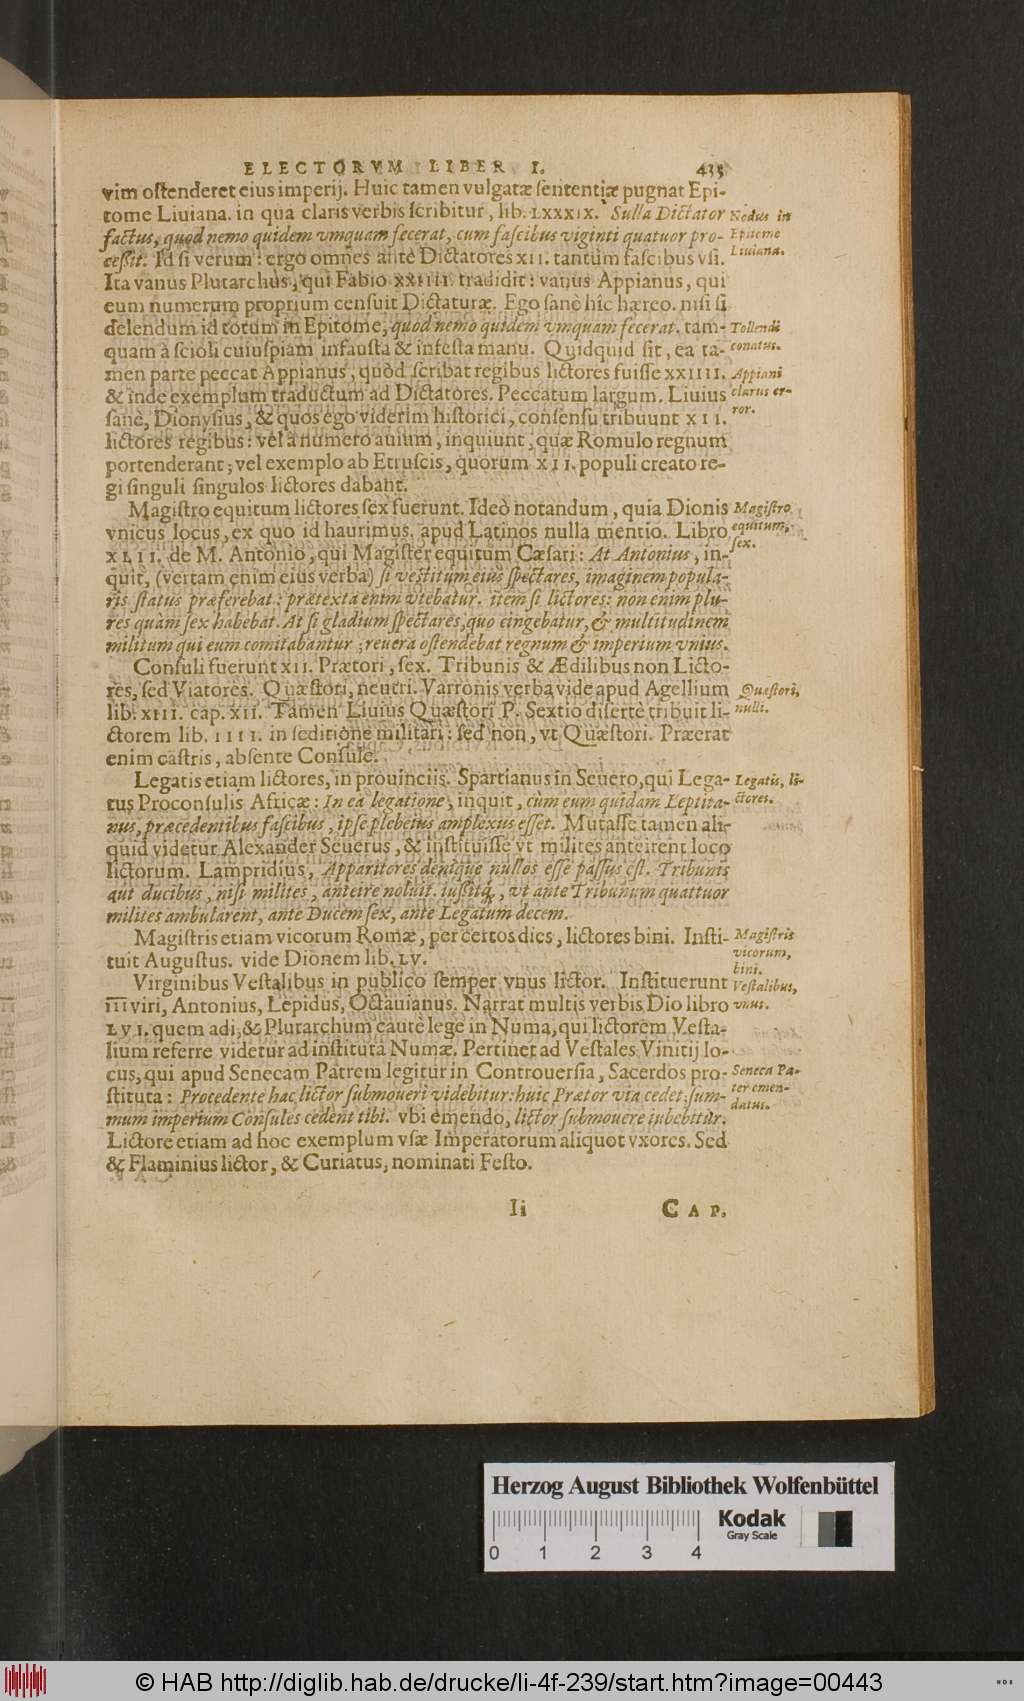 ELECTORVM LIBER I. 435
vim ostenderet eius imperij. Huic tamen vulgatæ sententiæ pugnat Epi-
tome Liuiana. in qua claris verbis scribitur, lib. LXXXIX. Sulla Dictator
factus, quod nemo quidem vmquam fecerat, cum fascibus viginti quatuor pro-
cessit. Id si verum: ergo omnes ante Dictatores XII. tantùm fascibus vsi.
Ita vanus Plutarchus, qui Fabio XXIIII. tradidit: vanus Appianus, qui
eum numerum proprium censuit Dictaturæ. Ego sanè hîc hæreo. nisi si
delendum id totum in Epitome, quod nemo quidem vmquam fecerat. tam-
quam à scioli cuiuspiam infausta & infesta manu. Quidquid sit, ea ta-
men parte peccat Appianus, quòd scribat regibus lictores fuisse XXIIII.
& inde exemplum traductum ad Dictatores. Peccatum largum. Liuius
sanè, Dionysius, & quos ego viderim historici, consensu tribuunt XII.
lictores regibus: vel à numero auium, inquiunt, quæ Romulo regnum
portenderant; vel exemplo ab Etruscis, quorum XII. populi creato re-
gi singuli singulos lictores dabant.
Magistro equitum lictores sex fuerunt. Ideò notandum, quia Dionis
vnicus locus, ex quo id haurimus. apud Latinos nulla mentio. Libro
XLII. de M. Antonio, qui Magister equitum Cæsari: At Antonius, in-
quit, (vertam enim eius verba) si vestitum eius spectares, imaginem popula-
ris status præferebat: prætexta enim vtebatur. item si lictores: non enim plu-
res quàm sex habebat. At si gladium spectares, quo cingebatur, & multitudinem
militum qui eum comitabantur; reuera ostendebat regnum & imperium vnius.
Consuli fuerunt XII. Prætori, sex. Tribunis & Ædilibus non Licto-
res, sed Viatores. Quæstori, neutri. Varronis verba vide apud Agellium
lib. XIII. cap. XII. Tamen Liuius Quæstori P. Sextio disertè tribuit li-
ctorem lib. IIII. in seditione militari: sed non, vt Quæstori. Præerat
enim castris, absente Consule.
Legatis etiam lictores, in prouinciis. Spartianus in Seuero, qui Lega-
tus Proconsulis Africæ: In ea legatione, inquit, cùm eum quidam Leptita-
nus, præcedentibus fascibus, ipse plebeius amplexus esset. Mutasse tamen ali-
quid videtur Alexander Seuerus, & instituisse vt milites anteirent loco
lictorum. Lampridius, Apparitores denique nullos esse passus est. Tribunis
aut ducibus, nisi milites, anteire noluit. iussitq́, vt ante Tribunum quattuor
milites ambularent, ante Ducem sex, ante Legatum decem.
Magistris etiam vicorum Romæ, per certos dies, lictores bini. Insti-
tuit Augustus. vide Dionem lib. LV.
Virginibus Vestalibus in publico semper vnus lictor. Instituerunt
IIIviri, Antonius, Lepidus, Octauianus. Narrat multis verbis Dio libro
LVI. quem adi, & Plutarchum cautè lege in Numa, qui lictorem Vesta-
lium referre videtur ad instituta Numæ. Pertinet ad Vestales Vinitij lo-
cus, qui apud Senecam Patrem legitur in Controuersia, Sacerdos pro-
stituta: Procedente hac, lictor submoueri videbitur: huic Prætor via cedet. sum-
mum imperium Consules cedent tibi. vbi emendo, lictor submouere iubebitur.
Lictore etiam ad hoc exemplum vsæ Imperatorum aliquot vxores. Sed
& Flaminius lictor, & Curiatus, nominati Festo.
Nodus in
Epitome
Liuiana.
Tollendi
conatus.
Appiani
clarus er-
ror.
Magistro
equitum,
sex.
Quæstori,
nulli.
Legatis, li-
ctores.
Magistris
vicorum,
bini.
Vestalibus,
vnus.
Seneca Pa-
ter emen-
datus.
Ii CAP.
Herzog August Bibliothek Wolfenbüttel
Kodak
Gray Scale
0 1 2 3 4
© HAB http://diglib.hab.de/drucke/li-4f-239/start.htm?image=00443